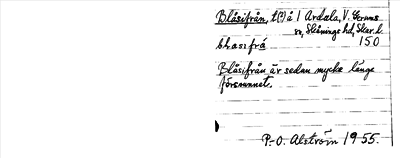 Blåsifrån, t(?) å i Ardala, V. Gerums
sn, Skånings hd, Skar. l.
blasifrå 150
Blåsifrån är sedan mycke länge
försvunnet.
P.-O. Alström 1955.